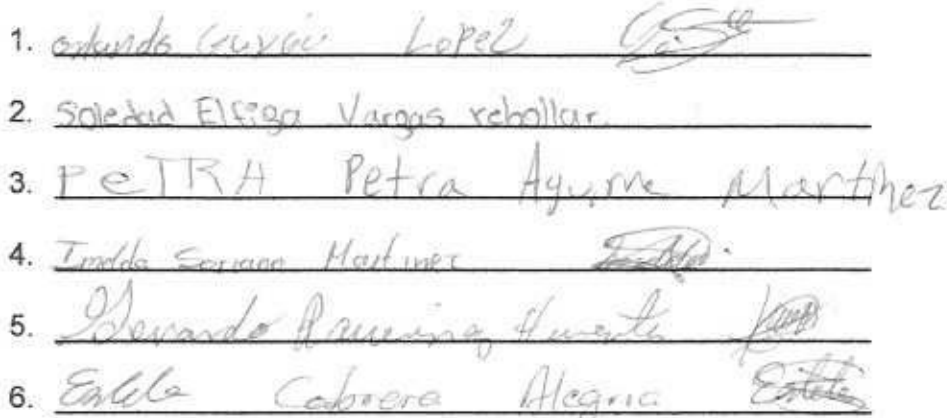 1. orlando García LoPez
2. Soledad Elfiga Vargas rebollar.
3. PeTRA Petra Aguirre Martinez
4. Imelda Soriano Martinez
5. Gerardo Ramirez Huerta
6. Estela Cabrera Alegria Estela